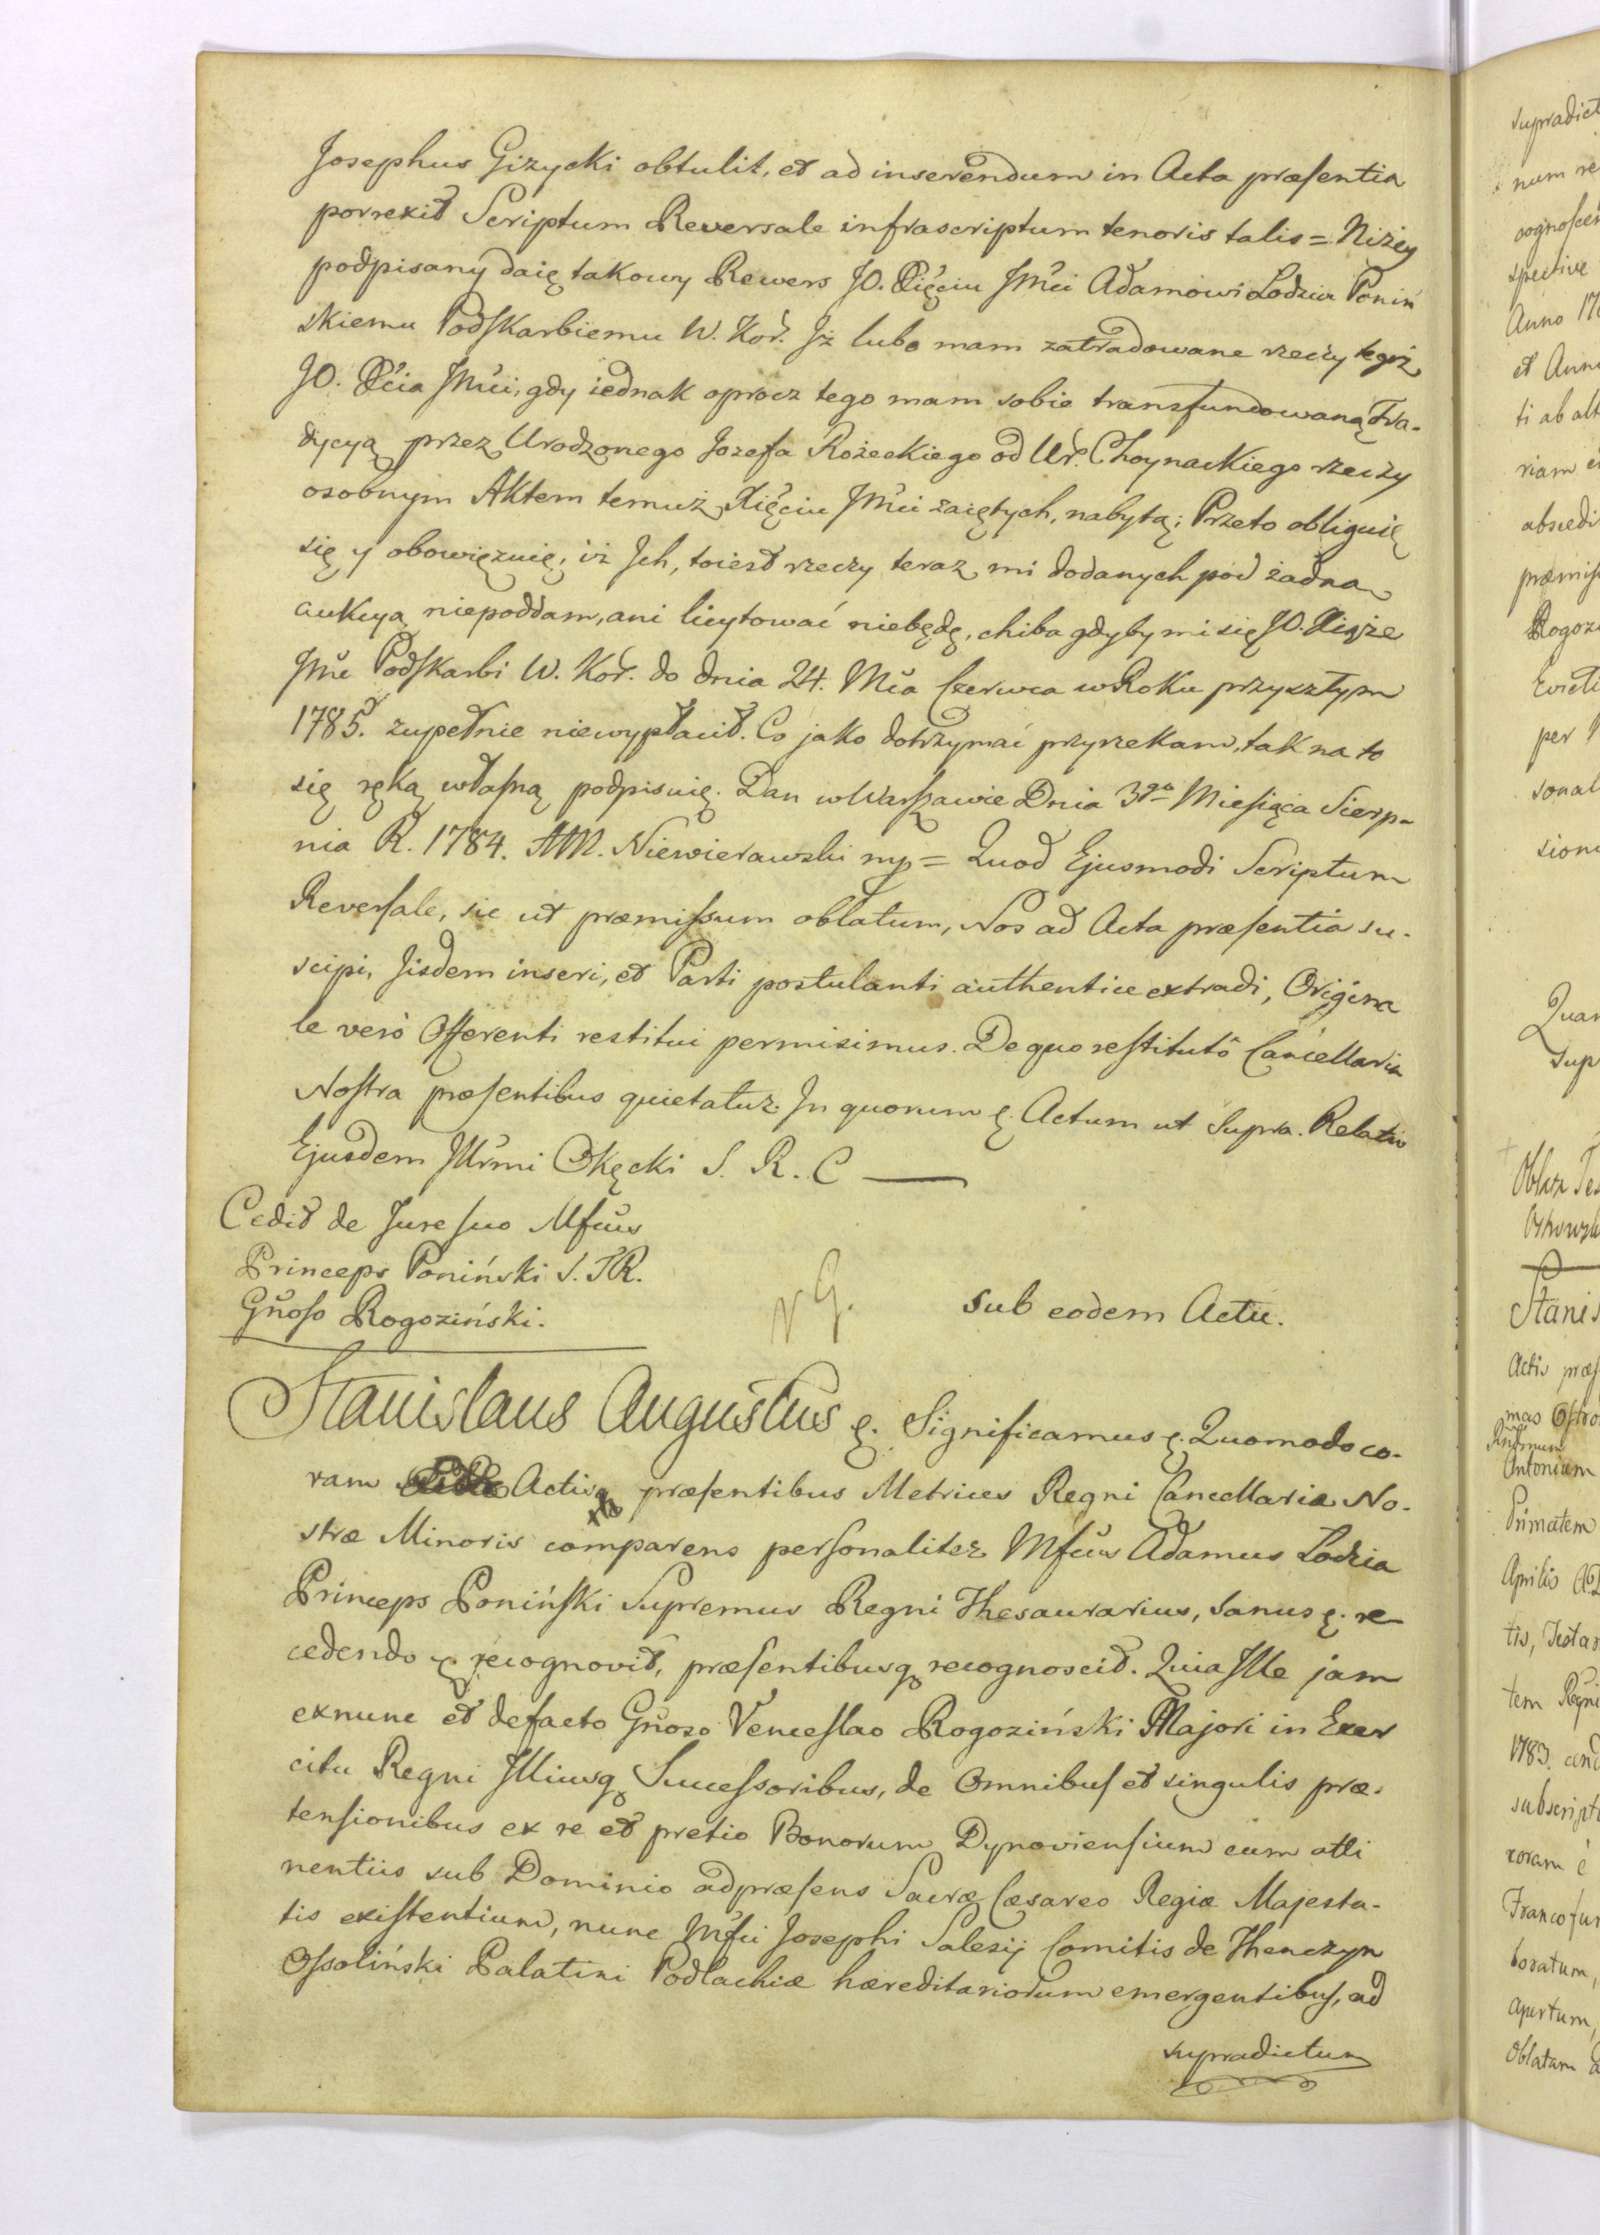 Josephus Giżycki obtulit, et ad inserendum in Acta præsentia
porrexit Scriptum Reversale infrascriptum tenoris talis = Niżey
podpisany daię takowy Rewers JO. Xięciu Jmći Adamowi Łodzia Poniń
skiemu Podskarbiemu W. Kor. Jż lubo mam zatradowane rzeczy tegoż
JO. Xćia Jmći, gdy iednak oprocz tego mam sobie transfundowaną Tra-
dycyą przez Urodzonego Jozefa Rożeckiego od Ur. Choynackiego rzeczy
osobnym Aktem temuż Xięciu Jmći zaiętych, nabytą; Przeto obliguię
się y obowięzuię, iż Jch, toiest rzeczy teraz mi dodanych pod żadna
aukcyą niepoddam, ani licytować niebędę, chiba gdyby mi się JO. Xiąże
Jmć Podskarbi W. Kor. do dnia 24. Mća Czerwca w Roku przyszłym
1785. zupełnie niewypłacił. Co jako dotrzymać przyrzekam, tak na to
się ręką własną podpisuię. Dan w Warszawie Dnia 3go Miesiąca Sierp-
nia R. 1784. AM. Niewierawski mp = Quod Ejusmodi Scriptum
Reversale, sic ut præmissum oblatum, Nos ad Acta præsentia su-
scipi, Jisdem inseri, et Parti postulanti authentice extradi, Origina
le verò Offerenti restitui permisimus. De quo restitutô Cancellaria
Nostra præsentibus quietatur. In quorum &. Actum ut supra. Relatio
Ejusdem Jllrmi Okęcki S. R. C —
Cedit de Jure suo Mfcus
Princeps Poniński S. T R.
Gnoso Rogoziński.
N G. sub eodem Actu.
Stanislaus Augustus &. Significamus &. Quomodo co-
ram Actis præsentibus Metrices Regni Cancellariæ No-
stræ Minoris comparens personaliter Mfcus Adamus Lodzia
Princeps Poniński Supremus Regni Thesaurarius, sanus &. re
cedendo &. recognovit, præsentibusq recognoscit. Quia Jlle jam
exnunc et defacto Gnoso Venceslao Rogoziński Majori in Exer
citu Regni Jlliusq Successoribus, de Omnibus et singulis præ-
tensionibus ex re et pretio Bonorum Dynoviensium cum atti
nentiis sub Dominio adpræsens Sacræ Cæsareo Regiæ Majesta-
tis existentium, nunc Mfci Josephi Salesij Comitis de Thenczyn
Ossoliński Palatini Podlachiæ hæreditariorum emergentibus, ad
supradictum
supradict
num re
cognoscen
spective
Anno 17
et Anno
ti ab alt
riam
præmiss
Rogoz
Evicti
per
sonal
sion
Quar
sup
Oblata Tes
Stanis
Actis præs
mas Ostro
Antonium
Primatem
Aprilis
tis, Testa
tem Regni
1783.
subscript
roram è
Francofur
boratum,
apertum,
Oblatam a